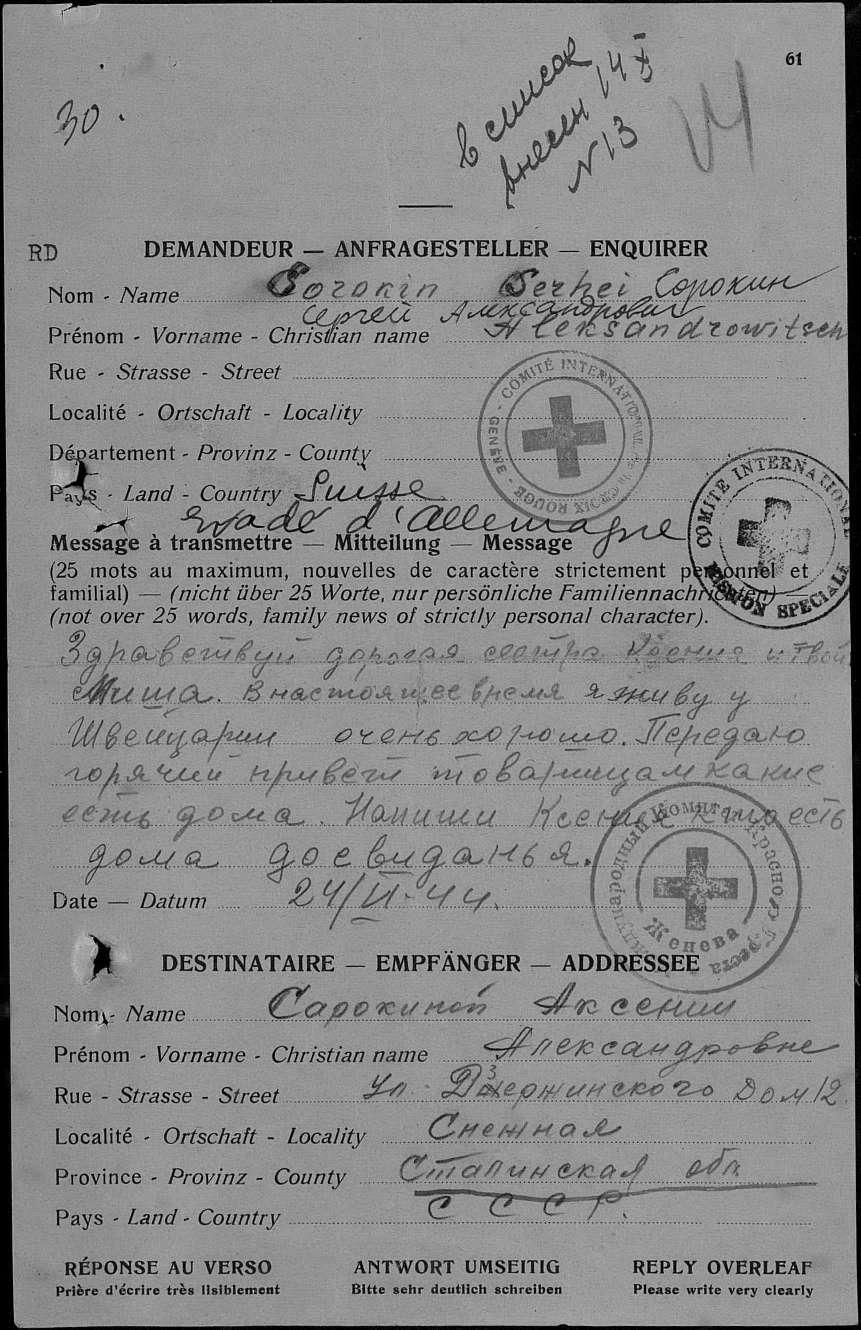 61
30.
в список
внесен 14 X
N 13
RD
DEMANDEUR — ANFRAGESTELLER — ENQUIRER
Nom - Name Sorokin Serhei Сорокин
Сергей Александрович
Prénom - Vorname - Christian name Aleksandrowitsch
Rue - Strasse - Street
Localité - Ortschaft - Locality
Département - Provinz - County
Pays - Land - Country Suisse
Evadé d'Allemagne
Message à transmettre — Mitteilung — Message
(25 mots au maximum, nouvelles de caractère strictement personnel et
familial) — (nicht über 25 Worte, nur persönliche Familiennachrichten) —
(not over 25 words, family news of strictly personal character).
COMITÉ INTERNATIONAL DE LA CROIX ROUGE - GENÈVE -
COMITÉ INTERNATIONAL
MISSION SPECIALE
Здравствуй дорогая сестра и твой
Миша. В настоящее время я живу у
Швейцарии очень хорошо. Передаю
горячий привет товарищам какие
есть дома. Напиши Ксения кто есть
дома досвиданья.
Date — Datum 24/VI-44.
Международный Комитет Красного Креста
Женева
DESTINATAIRE — EMPFÄNGER — ADDRESSEE
Nom - Name Сарокиной Аксении
Prénom - Vorname - Christian name Александровне
Rue - Strasse - Street Ул. Дзержинского Дом 12.
Localité - Ortschaft - Locality Снежная
Province - Provinz - County Сталинская обл.
Pays - Land - Country С С С Р.
RÉPONSE AU VERSO ANTWORT UMSEITIG REPLY OVERLEAF
Prière d'écrire très lisiblement Bitte sehr deutlich schreiben Please write very clearly